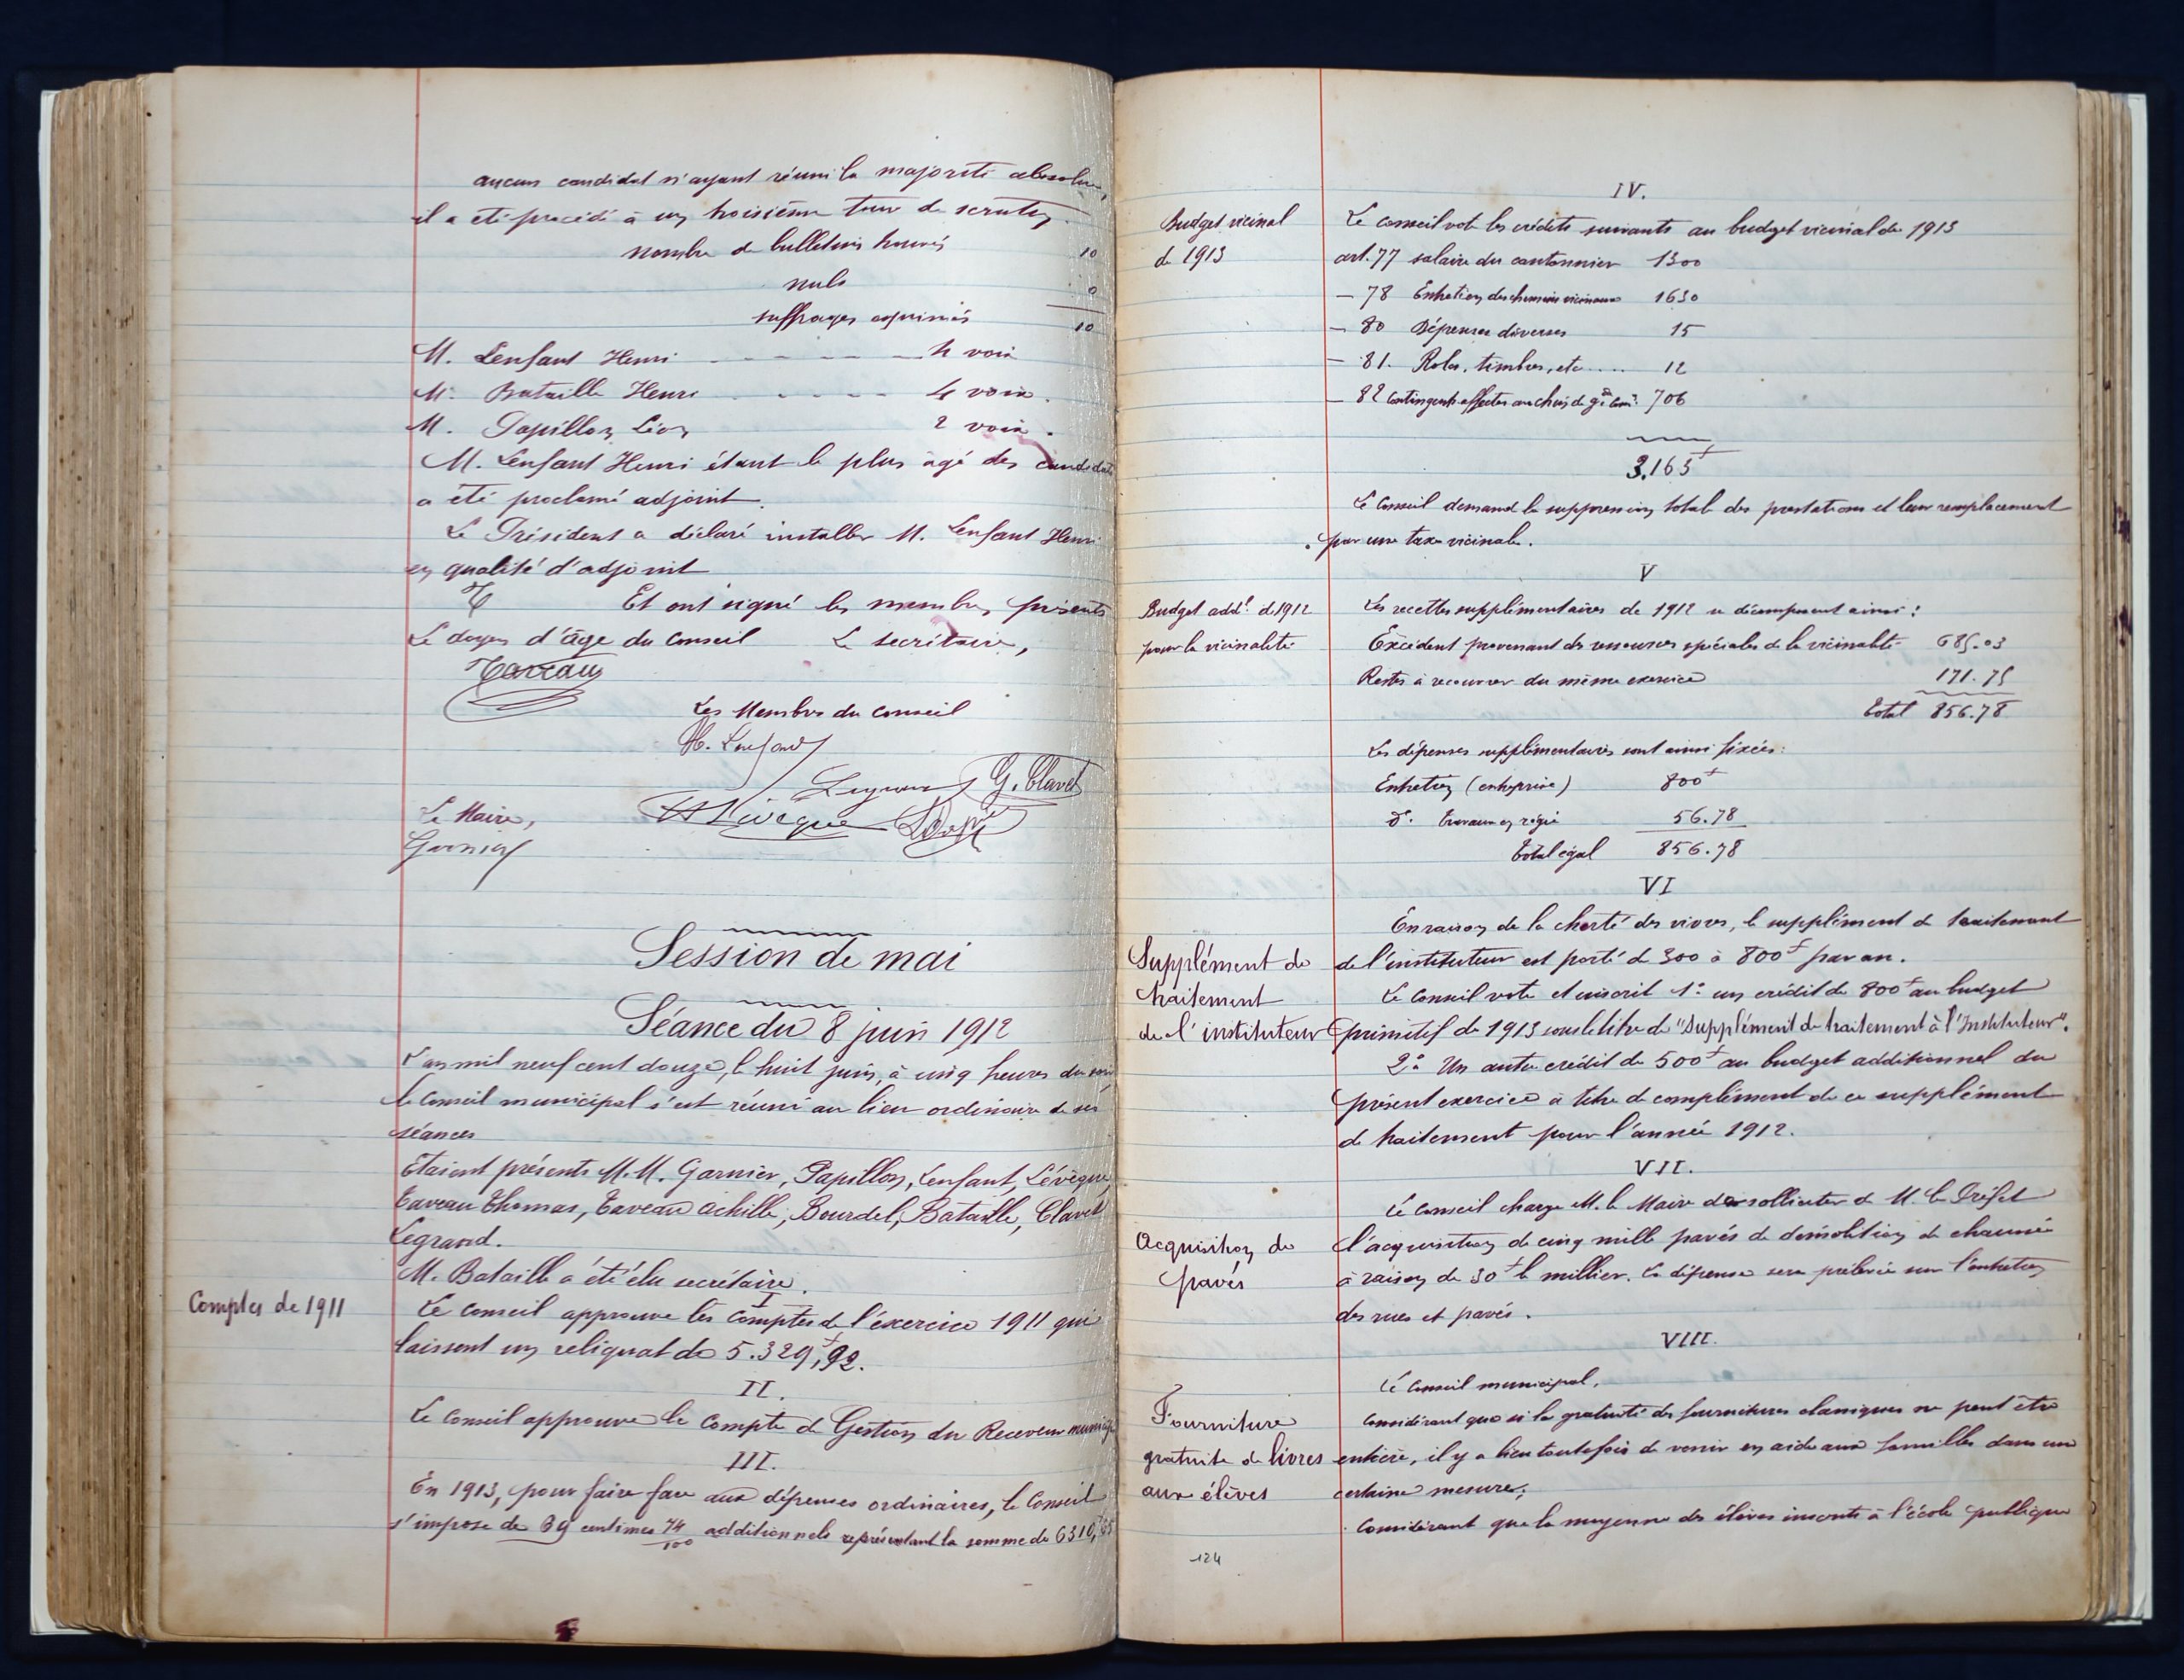 aucun candidat n'ayant réuni la majorité absolue,
il a été procédé à un troisième tour de scrutin.
nombre de bulletins trouvés 10
nuls 0
suffrages exprimés 10
M. Lenfant Henri 4 voix
M. Bataille Henri 4 voix.
M. Papillon Léon 2 voix.
M. Lenfant Henri étant le plus âgé des candidats
a été proclamé adjoint.
Le Président a déclaré installer M. Lenfant Henri
en qualité d'adjoint
Et ont signé les membres présents
Le doyen d'âge du Conseil Le secrétaire,
Les Membres du Conseil
H. Lenfant
Legrand G. Clavel
Le Maire, Lévêque
Garnier
Session de mai
Séance du 8 juin 1912
L'an mil neuf cent douze, le huit juin, à cinq heures du soir
le Conseil municipal s'est réuni au lieu ordinaire de ses
séances
Etaient présents M.M. Garnier, Papillon, Lenfant, Lévêque,
Taveau Thomas, Taveau Achille, Bourdel, Bataille, Clavel
Legrand.
M. Bataille a été élu secrétaire.
I
Comptes de 1911
Le Conseil approuve les Comptes de l'éxercice 1911 qui
laissent un reliquat de 5.329f,92.
II.
Le Conseil approuve le Compte de Gestion du Receveur municipal
III.
En 1913, pour faire face aux dépenses ordinaires, le Conseil
s'impose de 39 centimes 74/100 additionnels représentant la somme de 6310f,
IV.
Budget vicinal
de 1913
Le Conseil vote les crédits suivants au budget vicinal de 1913
art. 77 salaire du cantonnier 1300
— 78 Entretien des chemins vicinaux 1630
— 80 Dépenses diverses 15
— 81. Roles, timbres, etc .... 12
— 82 Contingents affectés aux chins de gde comn: 706
3,163f
Le Conseil demande la suppression totale des prestations et leur remplacement
par une taxe vicinale.
V
Budget addl. de 1912
pour la vicinalité
Les recettes supplémentaires de 1912 se décomposent ainsi:
Excédent provenant des ressources spéciales de la vicinalité 685.03
Restes à recouvrer du même exercice 171.75
Total 856.78
Les dépenses supplémentaires sont ainsi fixées:
Entretien (entreprise) 800f
do. Travaux en régie 56.78
Total égal 856.78
VI
Supplément de
traitement
de l'instituteur
En raison de la cherté des vivres, le supplément de traitement
de l'instituteur est porté de 300 à 800f par an.
Le Conseil vote et inscrit 1o un crédit de 800f au budget
primitif de 1913 sous le titre de "Supplément de traitement à l'Instituteur".
2o Un autre crédit de 500f au budget additionnel du
présent exercice à titre de complément de ce supplément
de traitement pour l'année 1912.
VII.
Acquisition de
pavés
Le Conseil charge M. le Maire de solliciter de M. le Préfet
l'acquisition de cinq mille pavés de démolition de chaussée
à raison de 30f le millier. La dépense sera prélevée sur l'entretien
des rues et pavés.
VIII.
Fourniture
gratuite de livres
aux élèves
Le Conseil municipal,
Considérant que si la gratuité des fournitures classiques ne peut être
entière, il y a lieu toutefois de venir en aide aux familles dans une
certaine mesure;
Considérant que la moyenne des élèves inscrits à l'école publique
124